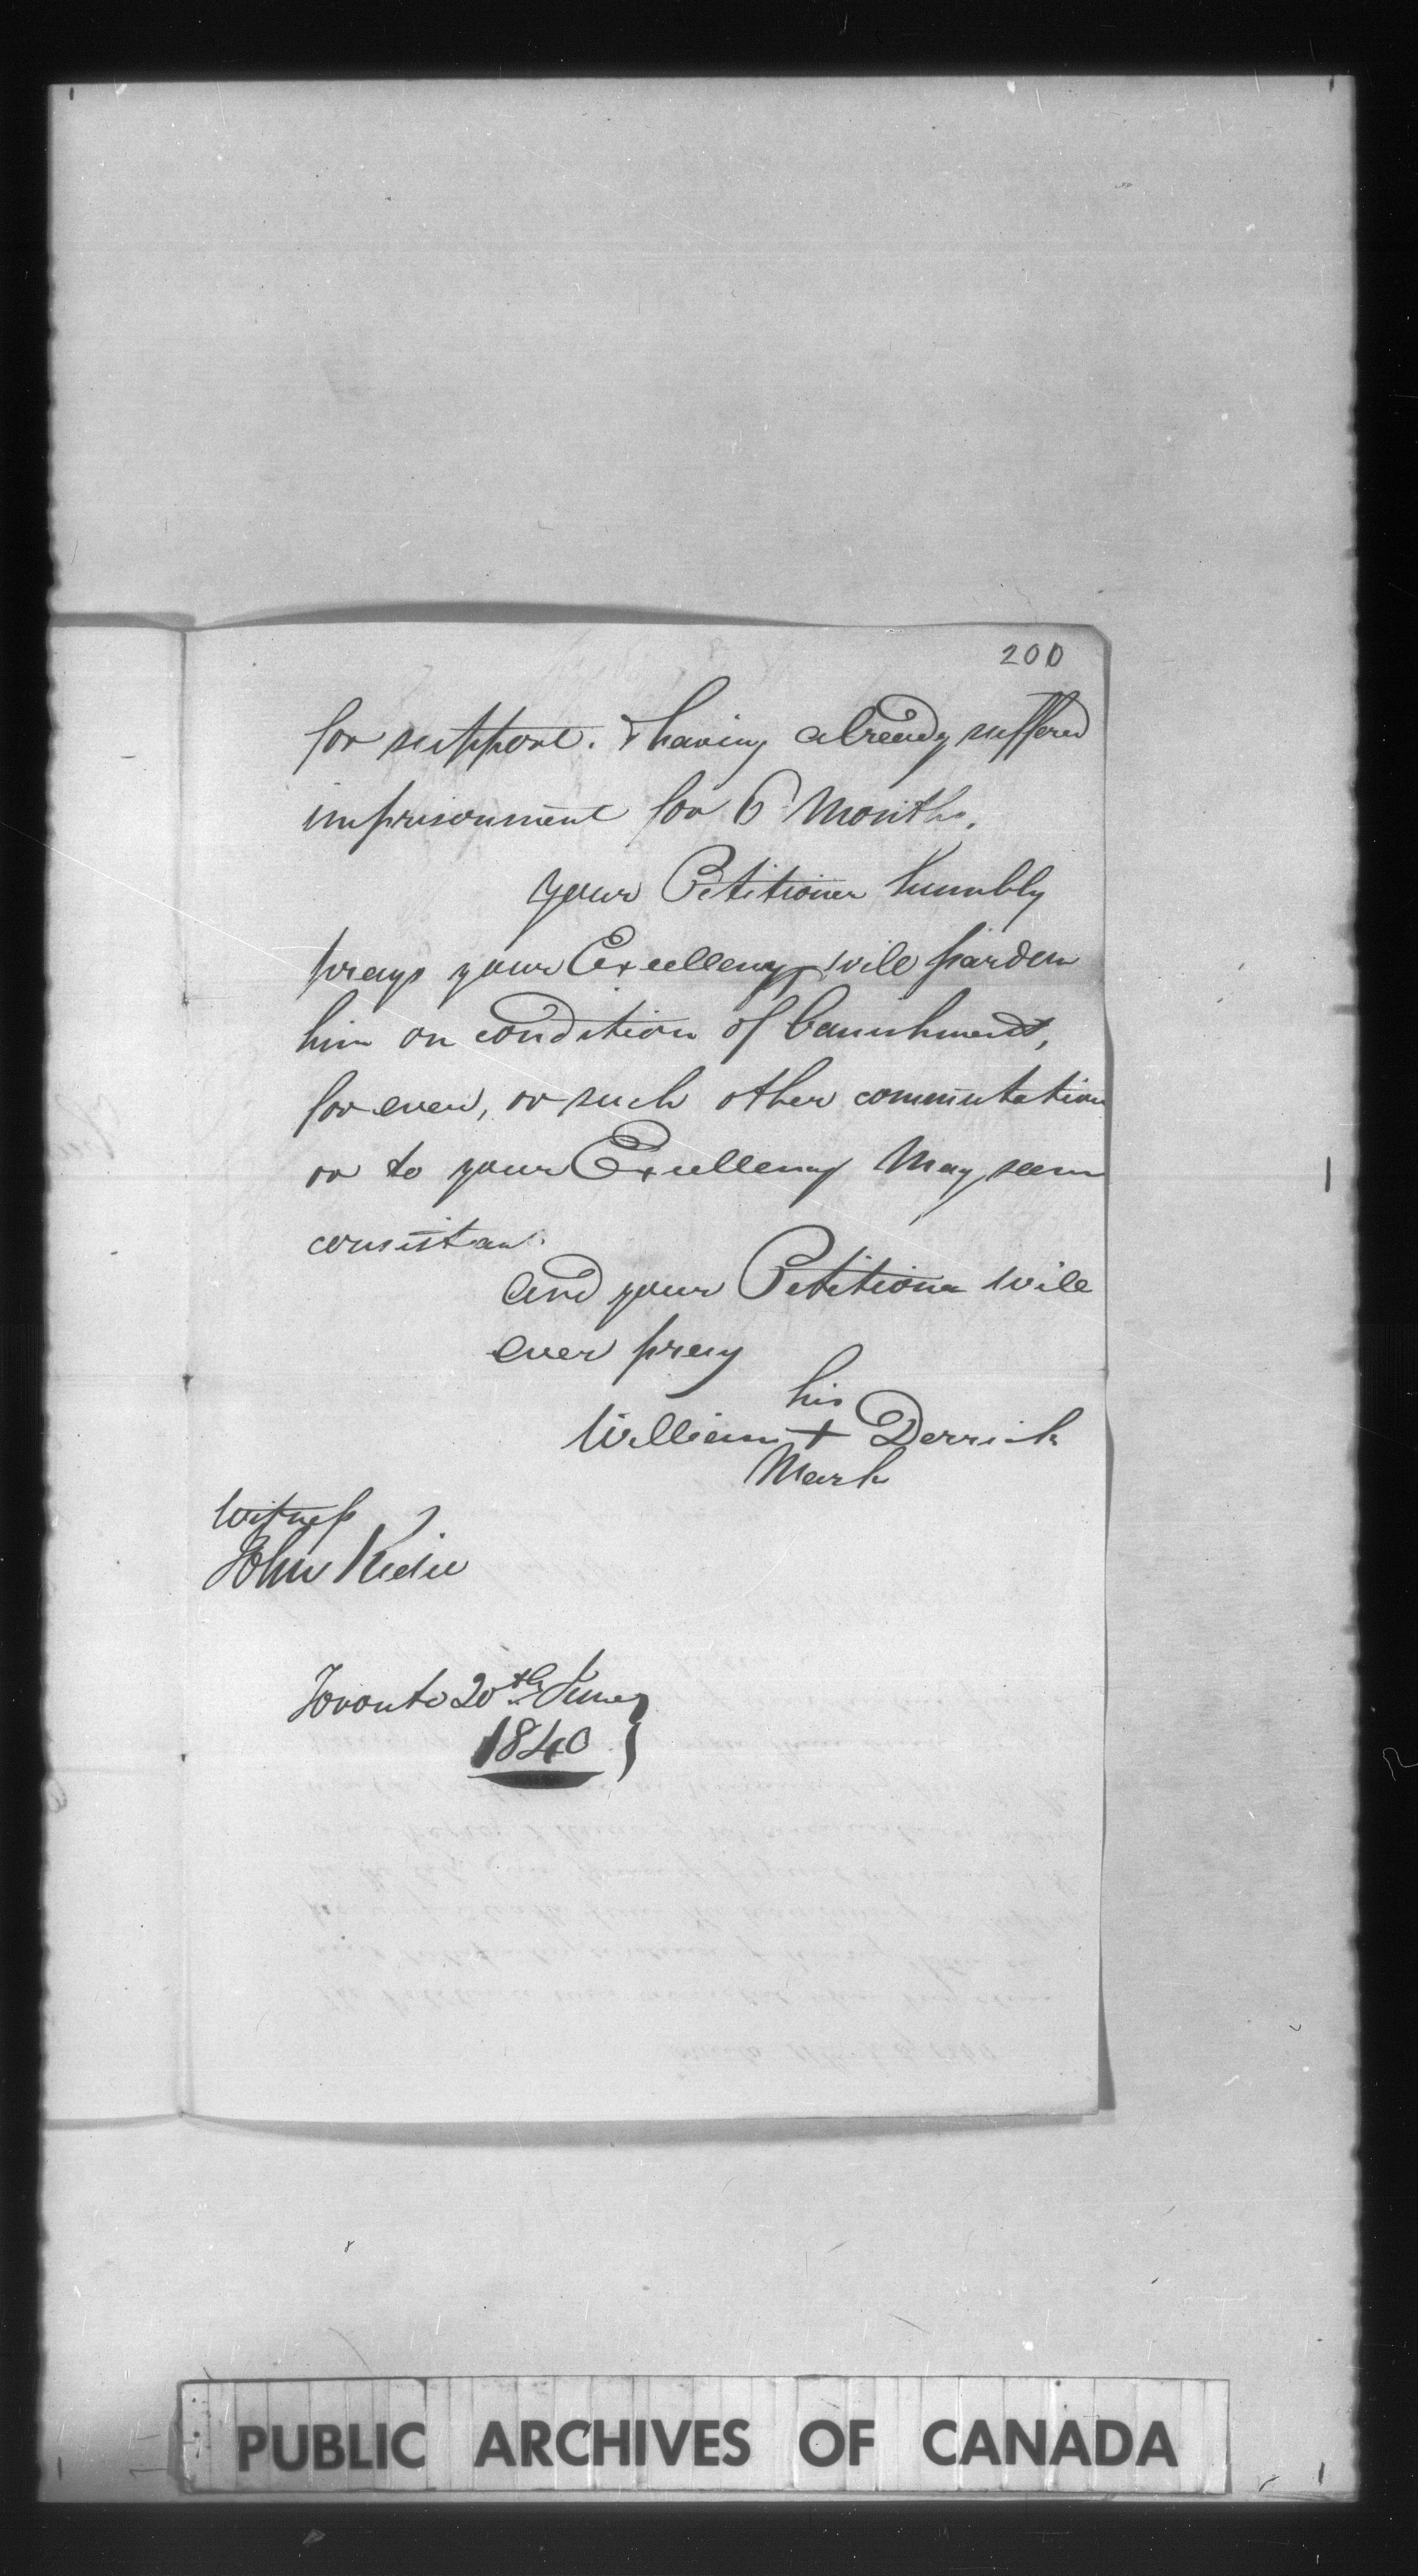 200
for support. & having already suffered
imprisonment for 6 Months.
your Petitioner humbly
prays your Excellency will pardon
him on condition of banishment,
for ever, or such other commutation
or to your Excellency May seem
consistant.
and your Petitioner will
ever pray
his
William + Derrick
Mark
Witness
John Kidie
Toronto 20th June
1840
PUBLIC ARCHIVES OF CANADA